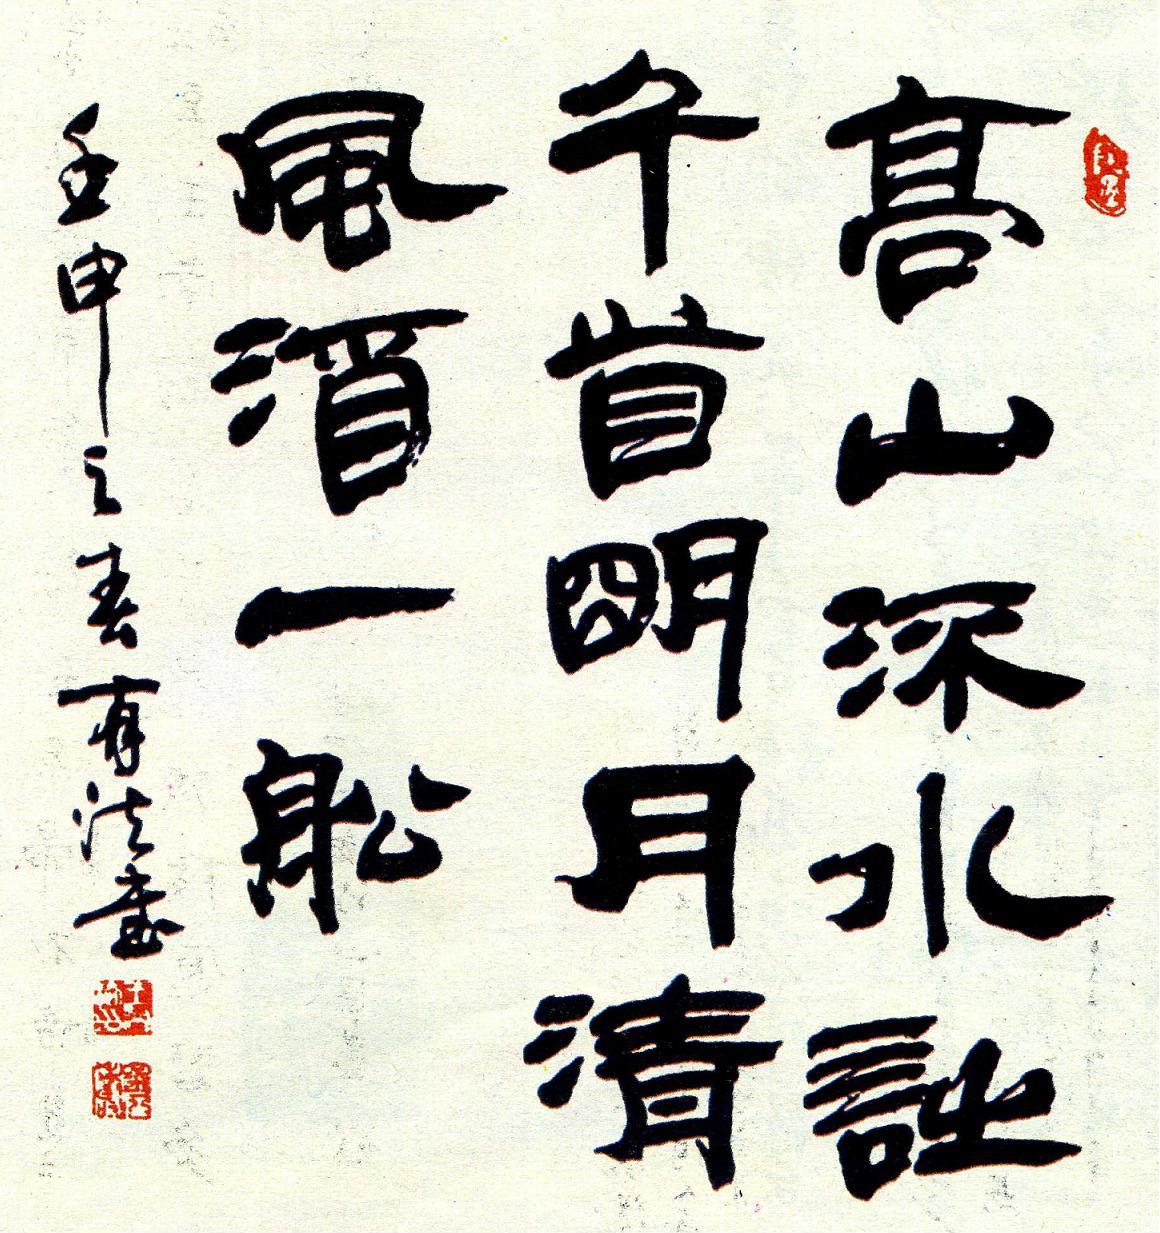 高山流水詩
千首明月清
風酒一船
壬申之春法書